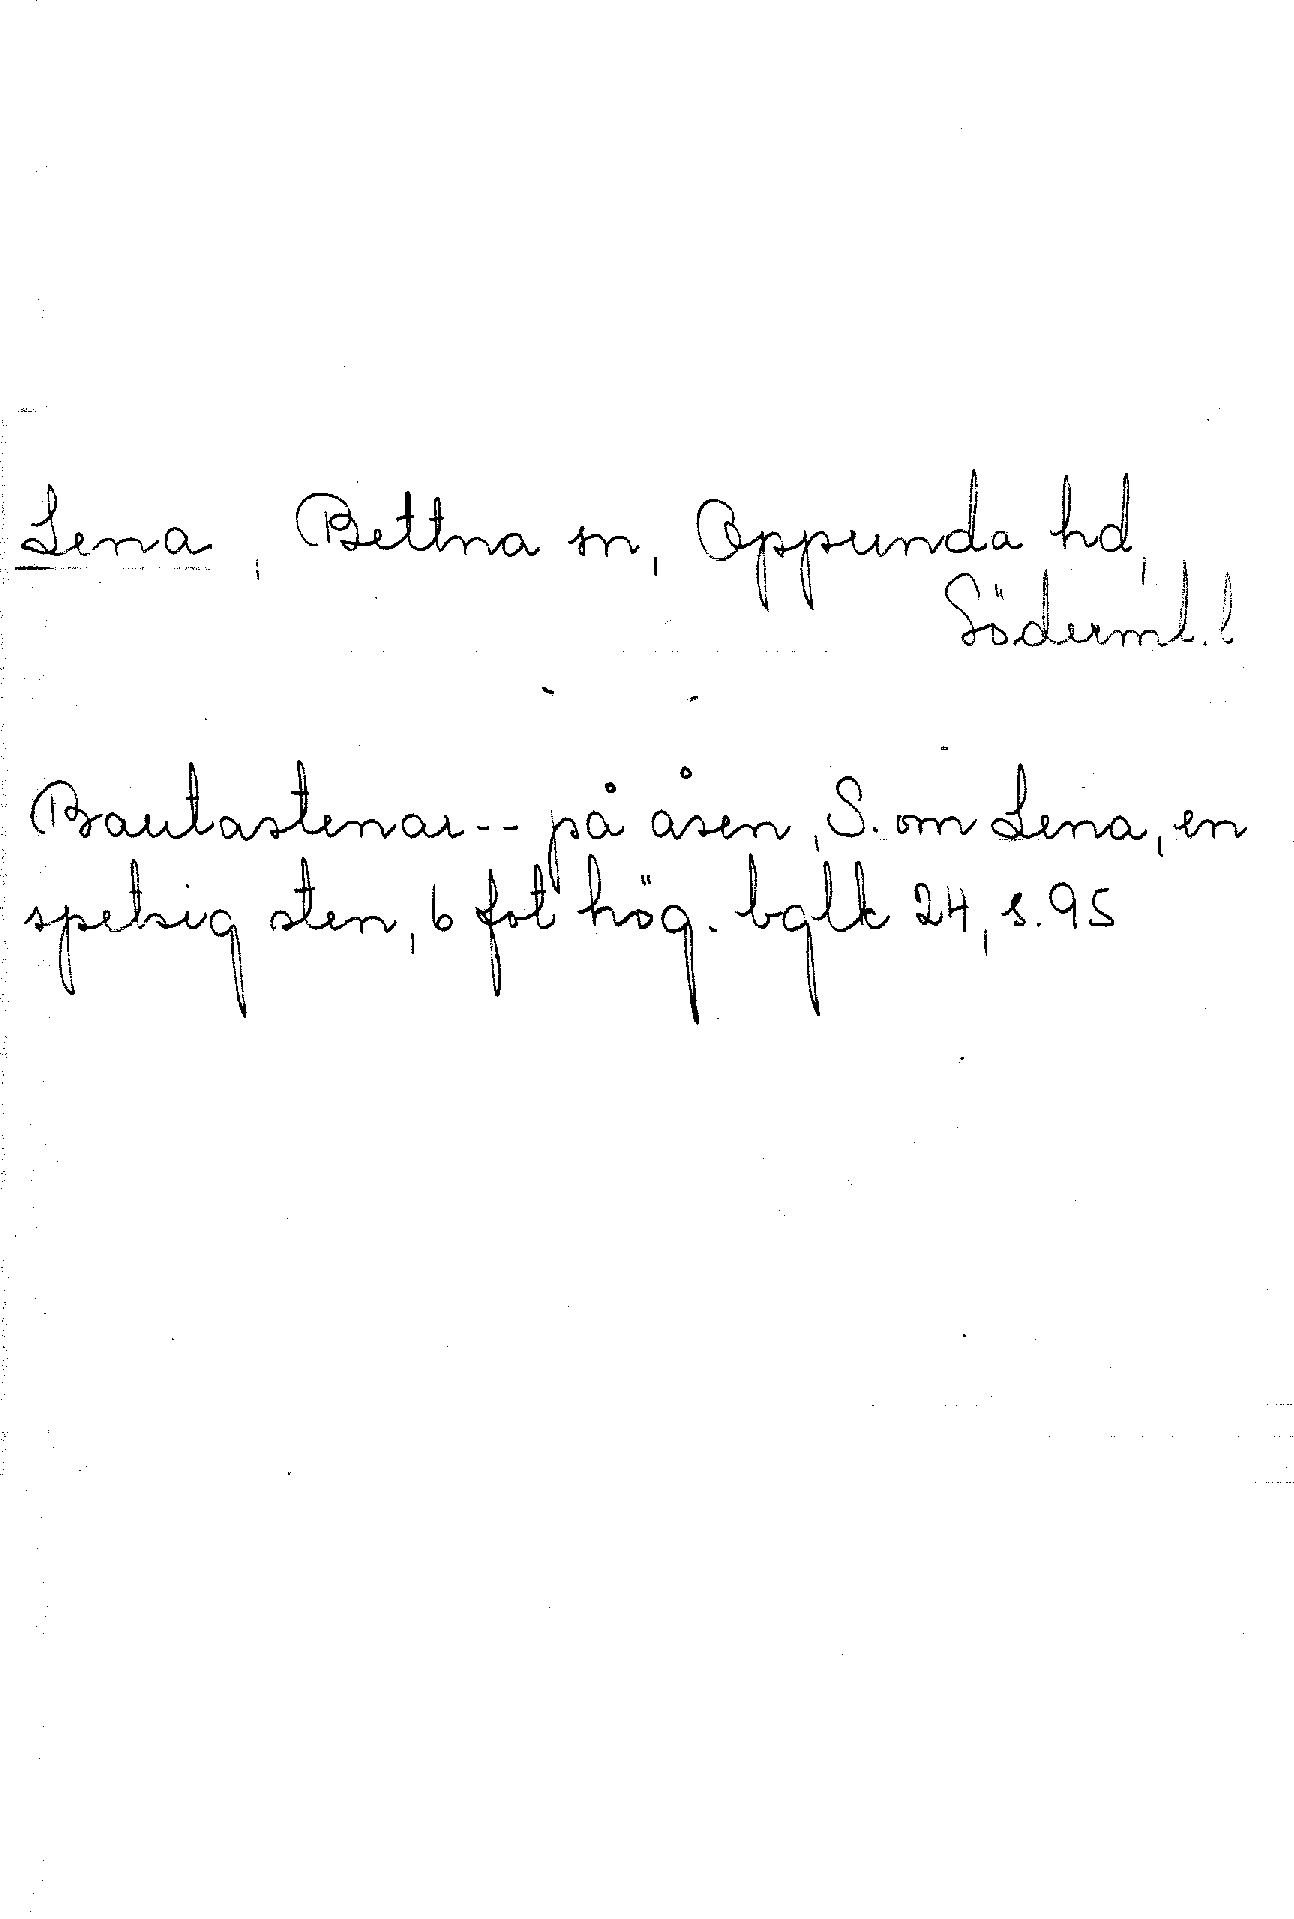 Lena, Bettna sn, Oppunda hd,
Söderml. l
Bautastenar -- på åsen, S. om Lena, en
spetsig sten, 6 fot hög. bglk 24, s. 95